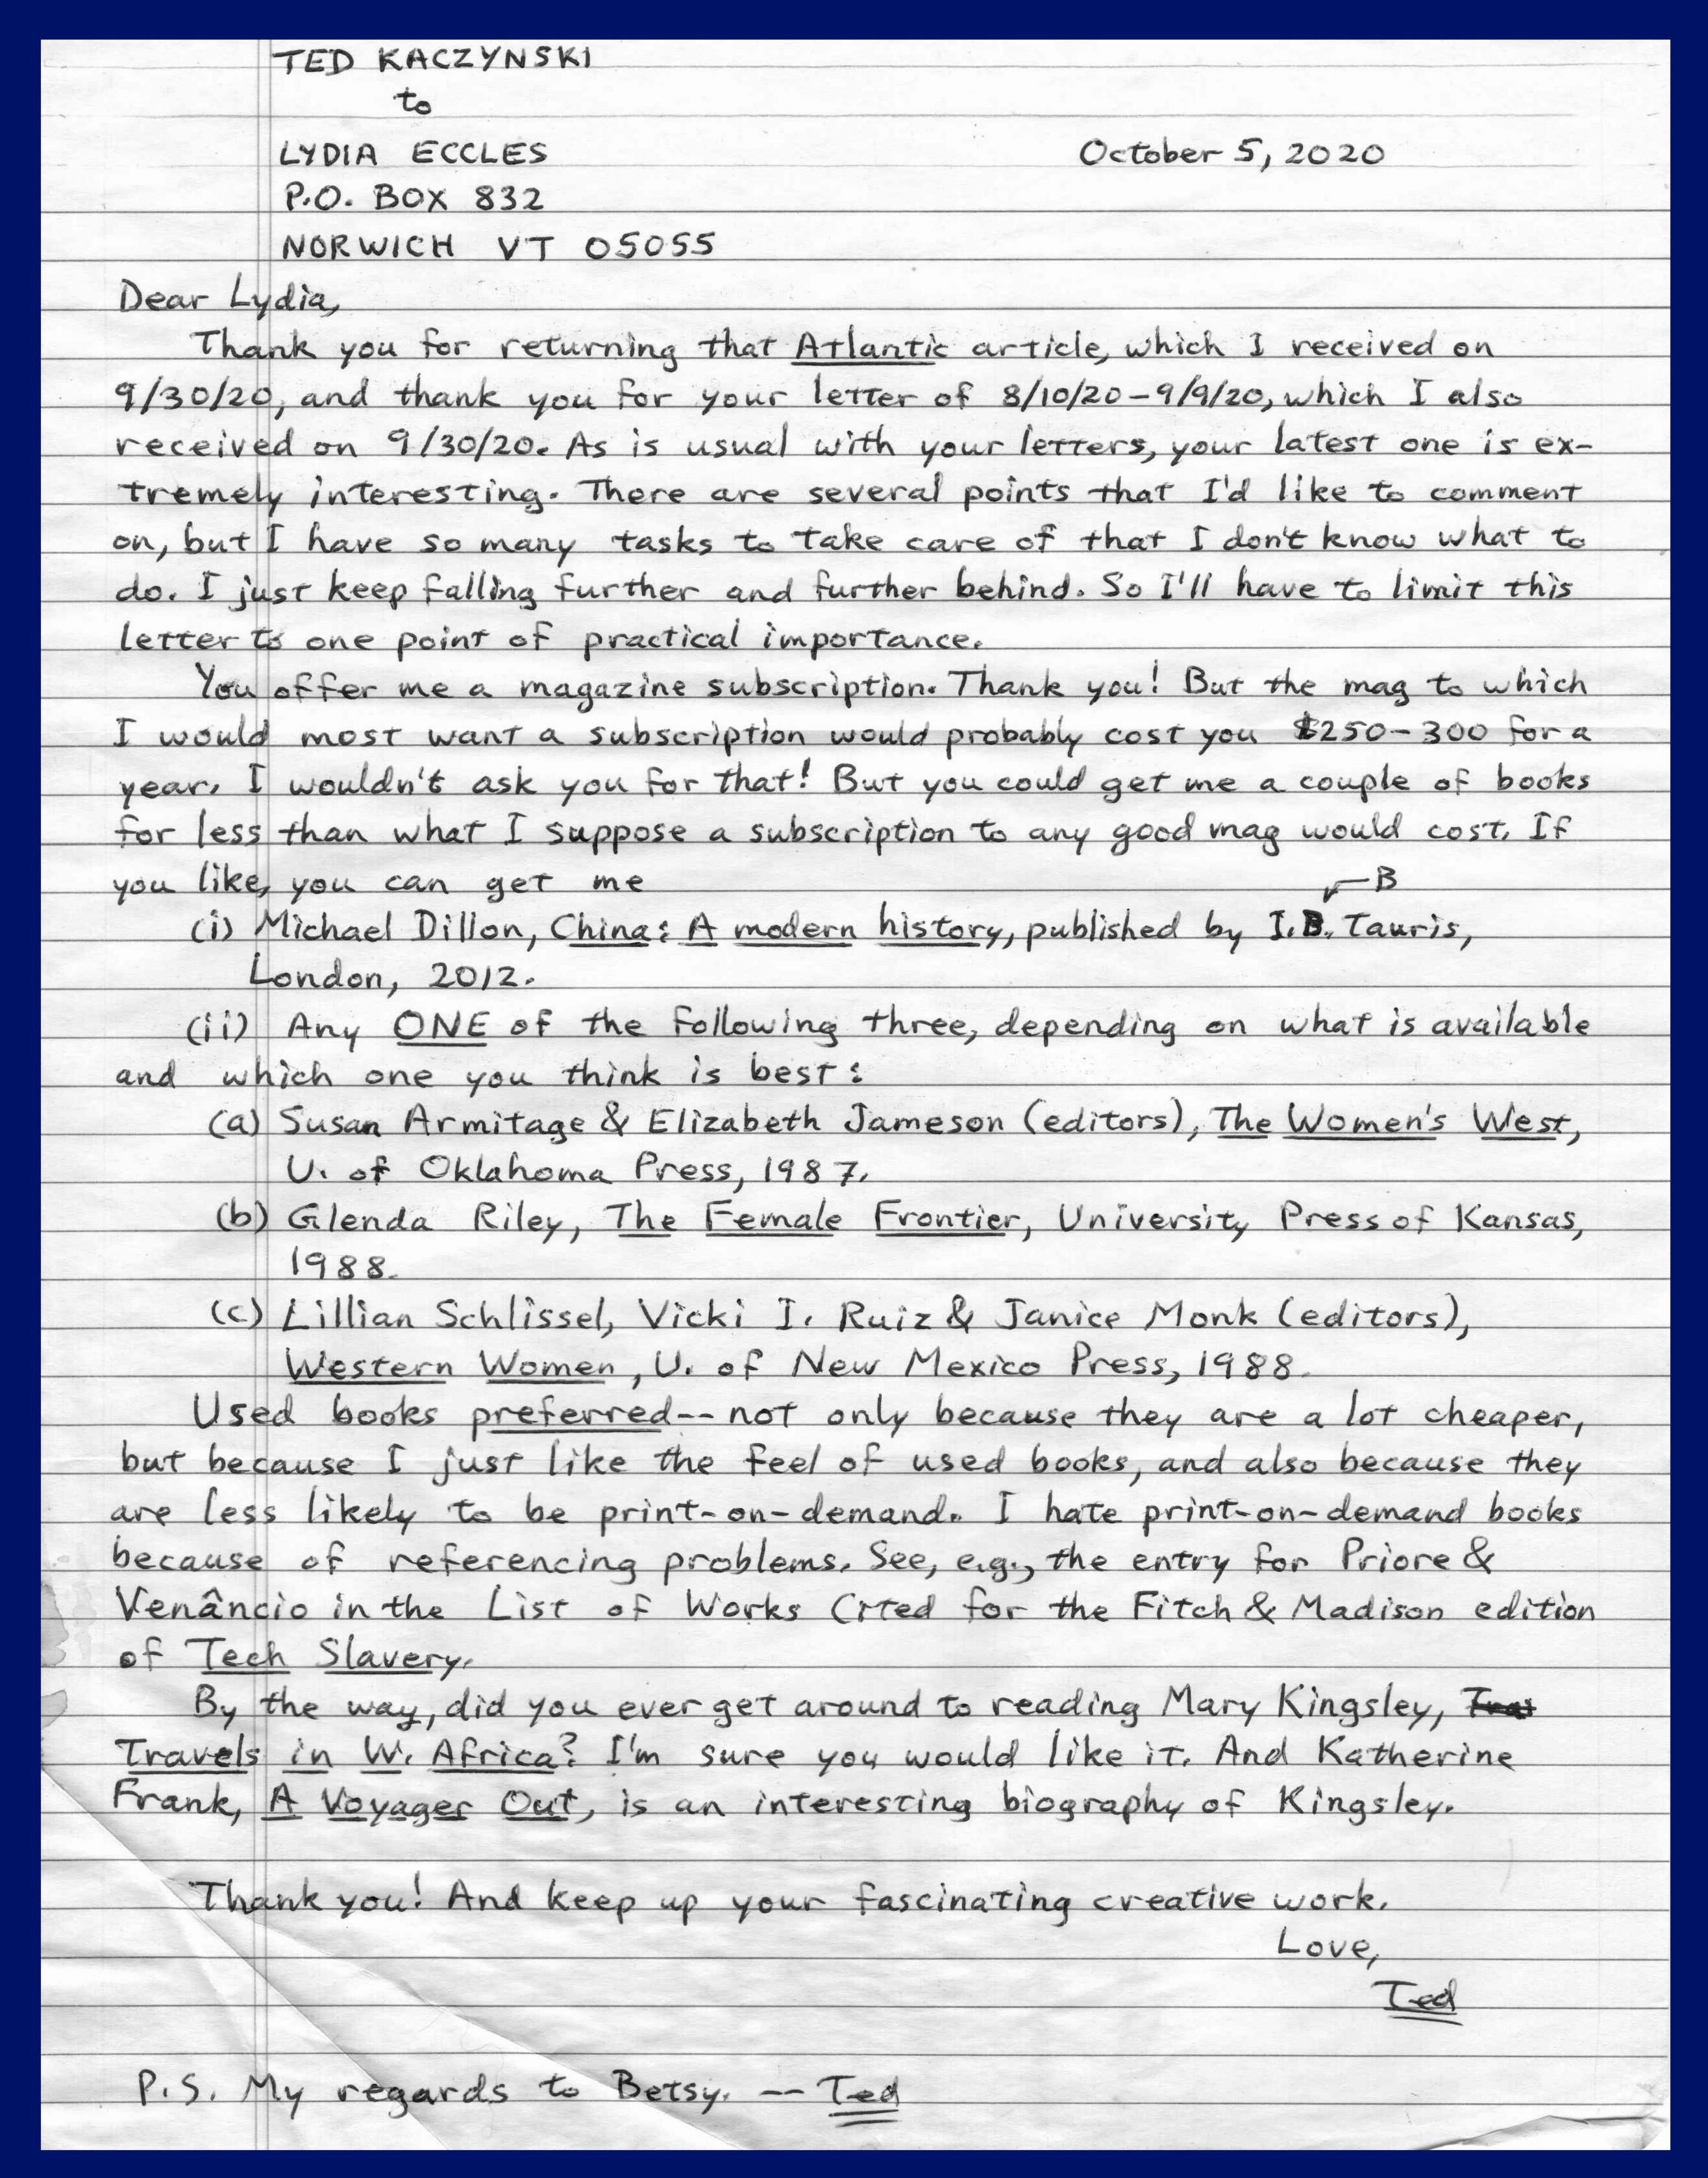 TED KACZYNSKI
to
LYDIA ECCLES October 5, 2020
P.O. BOX 832
NORWICH VT 05055
Dear Lydia,
Thank you for returning that Atlantic article, which I received on
9/30/20, and thank you for your letter of 8/10/20-9/9/20, which I also
received on 9/30/20. As is usual with your letters, your latest one is ex-
tremely interesting. There are several points that I'd like to comment
on, but I have so many tasks to take care of that I don't know what to
do. I just keep falling further and further behind. So I'll have to limit this
letter to one point of practical importance.
You offer me a magazine subscription. Thank you! But the mag to which
I would most want a subscription would probably cost you $250-300 for a
year. I wouldn't ask you for that! But you could get me a couple of books
for less than what I suppose a subscription to any good mag would cost. If
you like, you can get me
B
(i) Michael Dillon, China: A modern history, published by I.B. Tauris,
London, 2012.
(ii) Any ONE of the following three, depending on what is available
and which one you think is best:
(a) Susan Armitage & Elizabeth Jameson (editors), The Women's West,
U. of Oklahoma Press, 1987.
(b) Glenda Riley, The Female Frontier, University Press of Kansas,
1988.
(c) Lillian Schlissel, Vicki I. Ruiz & Janice Monk (editors),
Western Women, U. of New Mexico Press, 1988.
Used books preferred-- not only because they are a lot cheaper,
but because I just like the feel of used books, and also because they
are less likely to be print-on-demand. I hate print-on-demand books
because of referencing problems. See, e.g., the entry for Priore &
Venâncio in the List of Works Cited for the Fitch & Madison edition
of Tech Slavery.
By the way, did you ever get around to reading Mary Kingsley,
Travels in W. Africa? I'm sure you would like it. And Katherine
Frank, A Voyager Out, is an interesting biography of Kingsley.
Thank you! And keep up your fascinating creative work.
Love,
Ted
P.S. My regards to Betsy. -- Ted